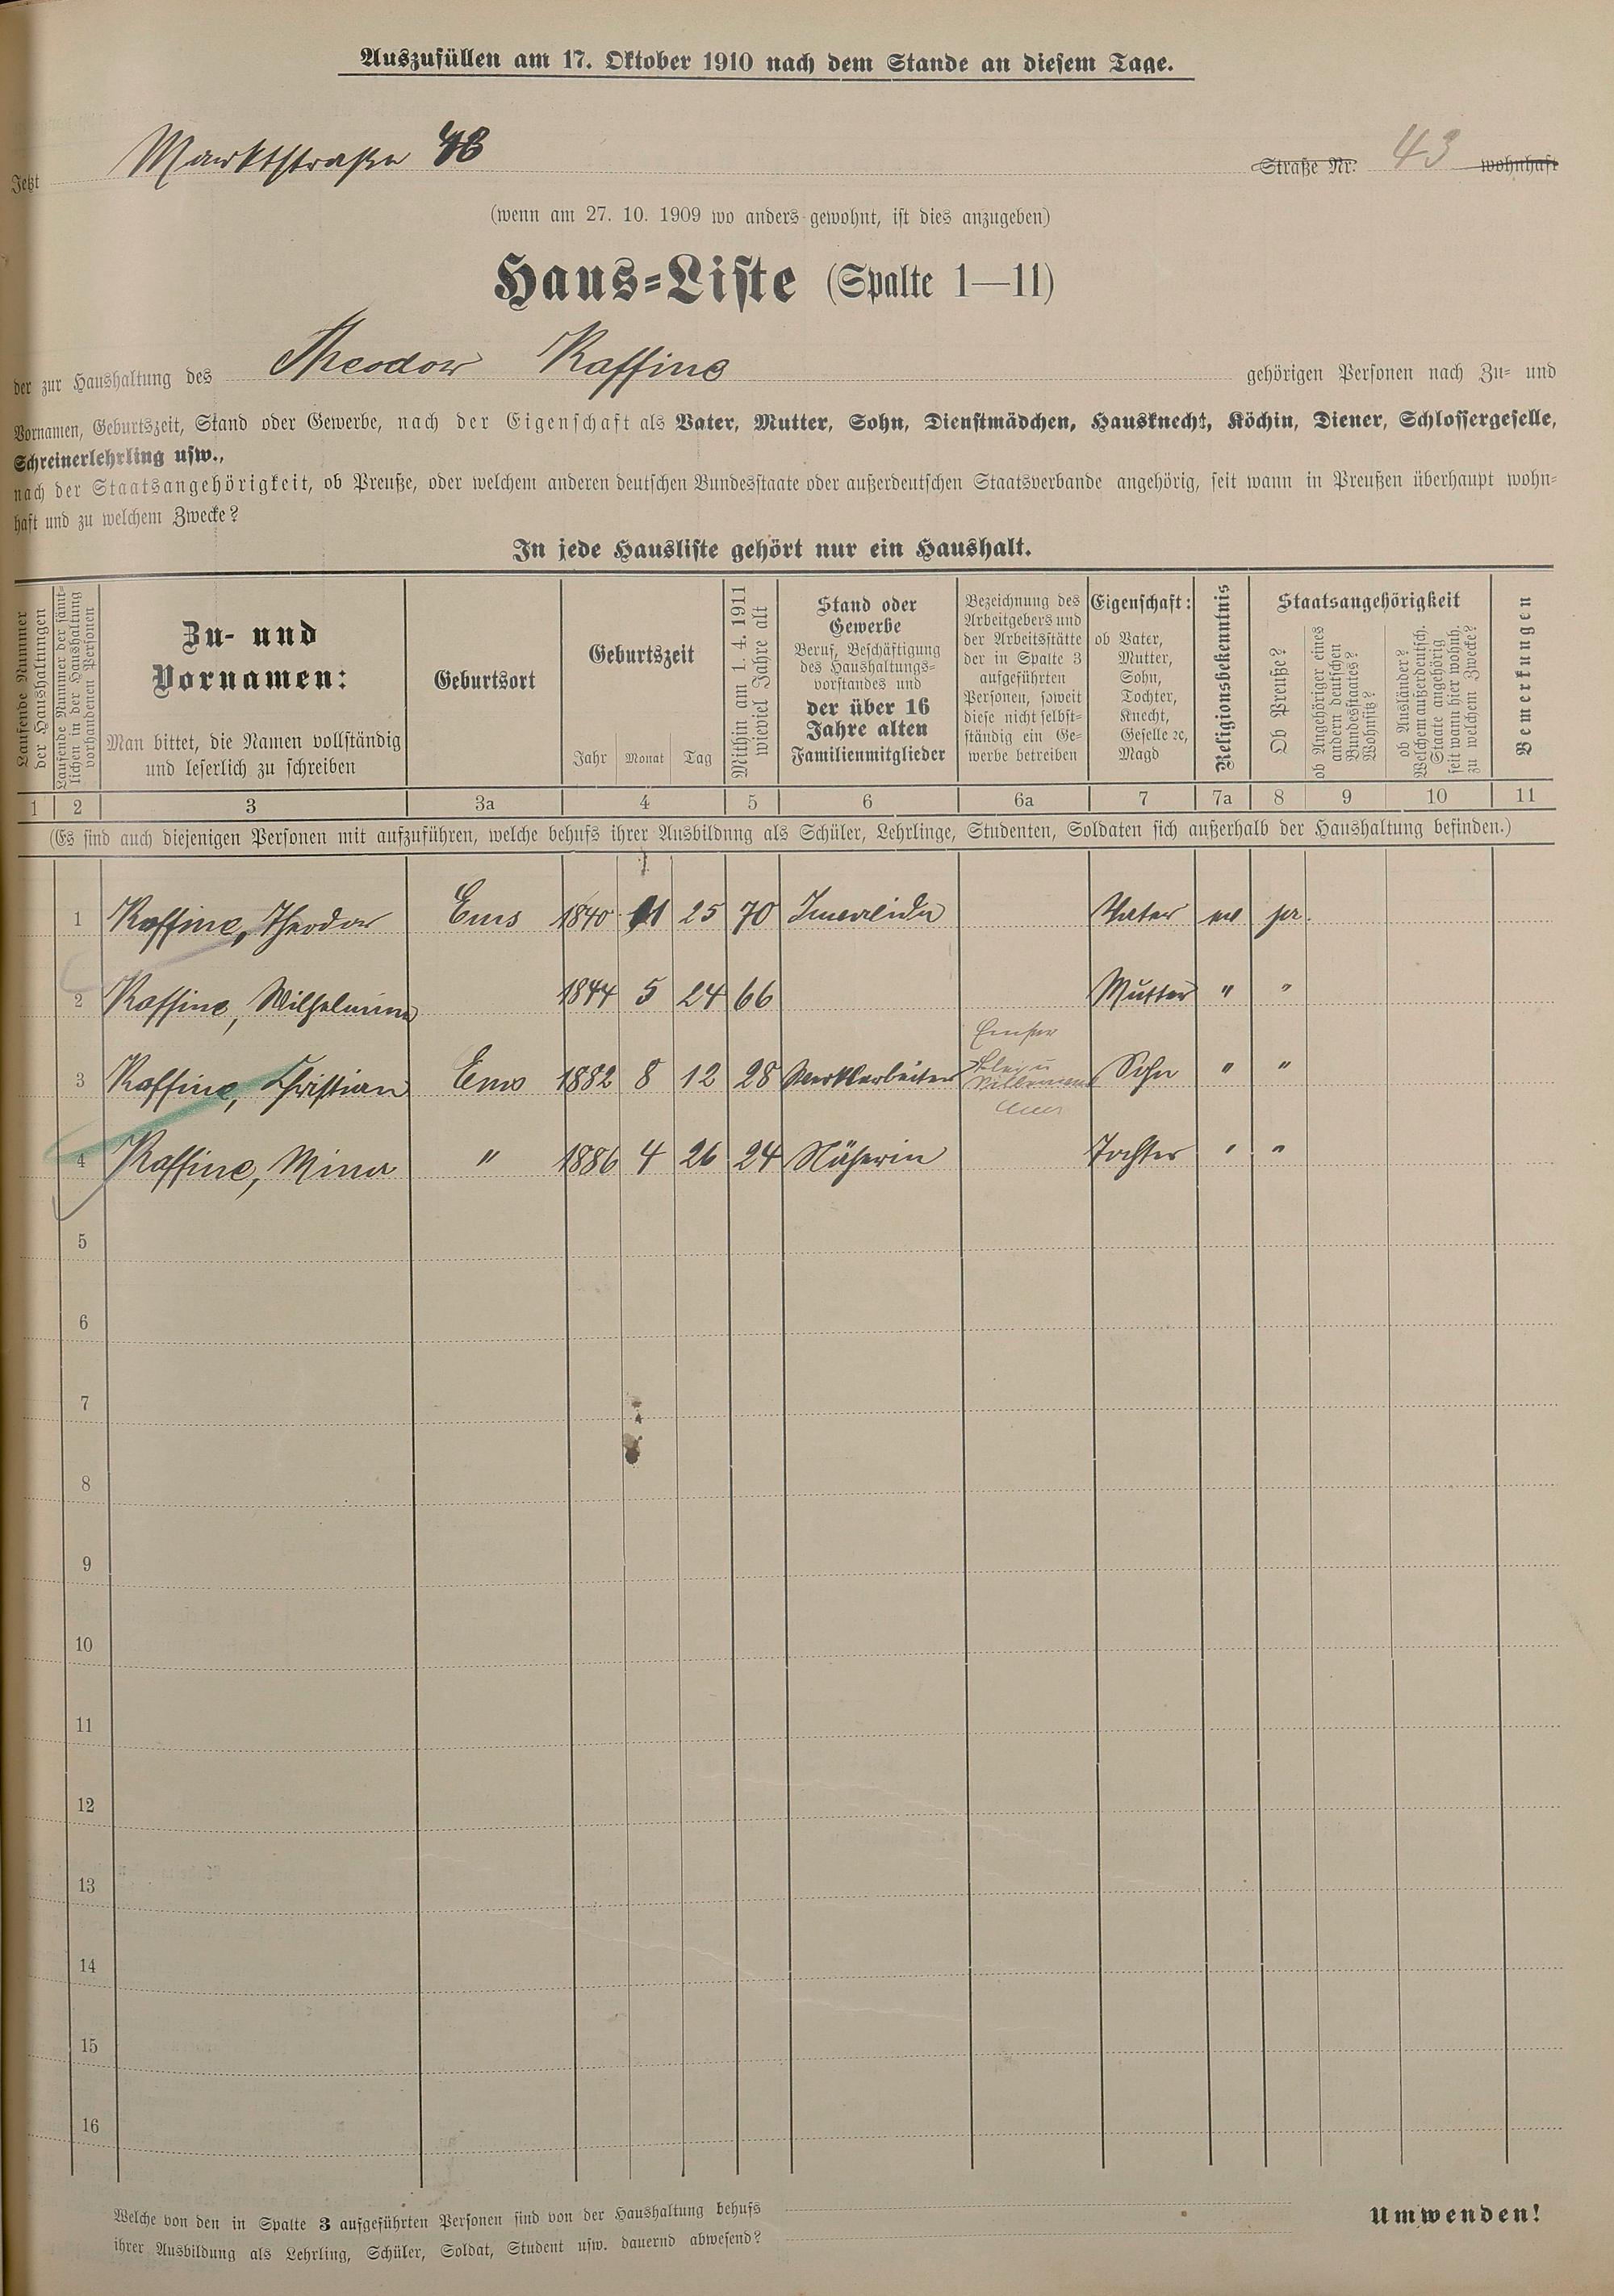 Auszufüllen am 17. Oktober 1910 nach dem Stande an diesem Tage.
Jetzt Marktstraße 43 Straße Nr. 43 wohnhaft
(wenn am 27. 10. 1909 wo anders gewohnt, ist dies anzugeben)
Haus-Liste (Spalte 1—11)
der zur Haushaltung des Theodor Kaffine gehörigen Personen nach Zu- und
Vornamen, Geburtszeit, Stand oder Gewerbe, nach der Eigenschaft als Vater, Mutter, Sohn, Dienstmädchen, Hausknecht, Köchin, Diener, Schlossergeselle,
Schreinerlehrling usw.,
nach der Staatsangehörigkeit, ob Preuße, oder welchem anderen deutschen Bundesstaate oder außerdeutschen Staatsverbande angehörig, seit wann in Preußen überhaupt wohn-
haft und zu welchem Zwecke?
In jede Hausliste gehört nur ein Haushalt.
Laufende Nummer
der Haushaltungen
Laufende Nummer der sämt-
lichen in der Haushaltung
vorhandenen Personen
Zu- und
Vornamen:
Man bittet, die Namen vollständig
und leserlich zu schreiben
Geburtsort
Geburtszeit
Jahr Monat Tag
Mithin am 1. 4. 1911
wieviel Jahre alt
Stand oder
Gewerbe
Beruf, Beschäftigung
des Haushaltungs-
vorstandes und
der über 16
Jahre alten
Familienmitglieder
Bezeichnung des
Arbeitgebers und
der Arbeitsstätte
der in Spalte 3
aufgeführten
Personen, soweit
diese nicht selbst-
ständig ein Ge-
werbe betreiben
Eigenschaft:
ob Vater,
Mutter,
Sohn,
Tochter,
Knecht,
Geselle ꝛc,
Magd
Religionsbekenntnis
Staatsangehörigkeit
Ob Preuße?
ob Angehöriger eines
andern deutschen
Bundesstaates?
Wohnsitz?
ob Ausländer?
Welchem außerdeutsch.
Staate angehörig
seit wann hier wohnh.
zu welchem Zwecke?
Bemerkungen
1 2 3 3a 4 5 6 6a 7 7a 8 9 10 11
(Es sind auch diejenigen Personen mit aufzuführen, welche behufs ihrer Ausbildung als Schüler, Lehrlinge, Studenten, Soldaten sich außerhalb der Haushaltung befinden.)
1 Kaffine, Theodor Ems 1840 11 25 70 Invalide Vater ev pr.
2 Kaffine, Wilhelmine 1844 5 24 66 Mutter " "
3 Kaffine, Christian Ems 1882 8 12 28 Werkarbeiter Emser Blei u Sohn " "
4 Kaffine, Mina " 1886 4 26 24 Näherin Tochter " "
5
6
7
8
9
10
11
12
13
14
15
16
Welche von den in Spalte 3 aufgeführten Personen sind von der Haushaltung behufs
ihrer Ausbildung als Lehrling, Schüler, Soldat, Student usw. dauernd abwesend?
Umwenden!